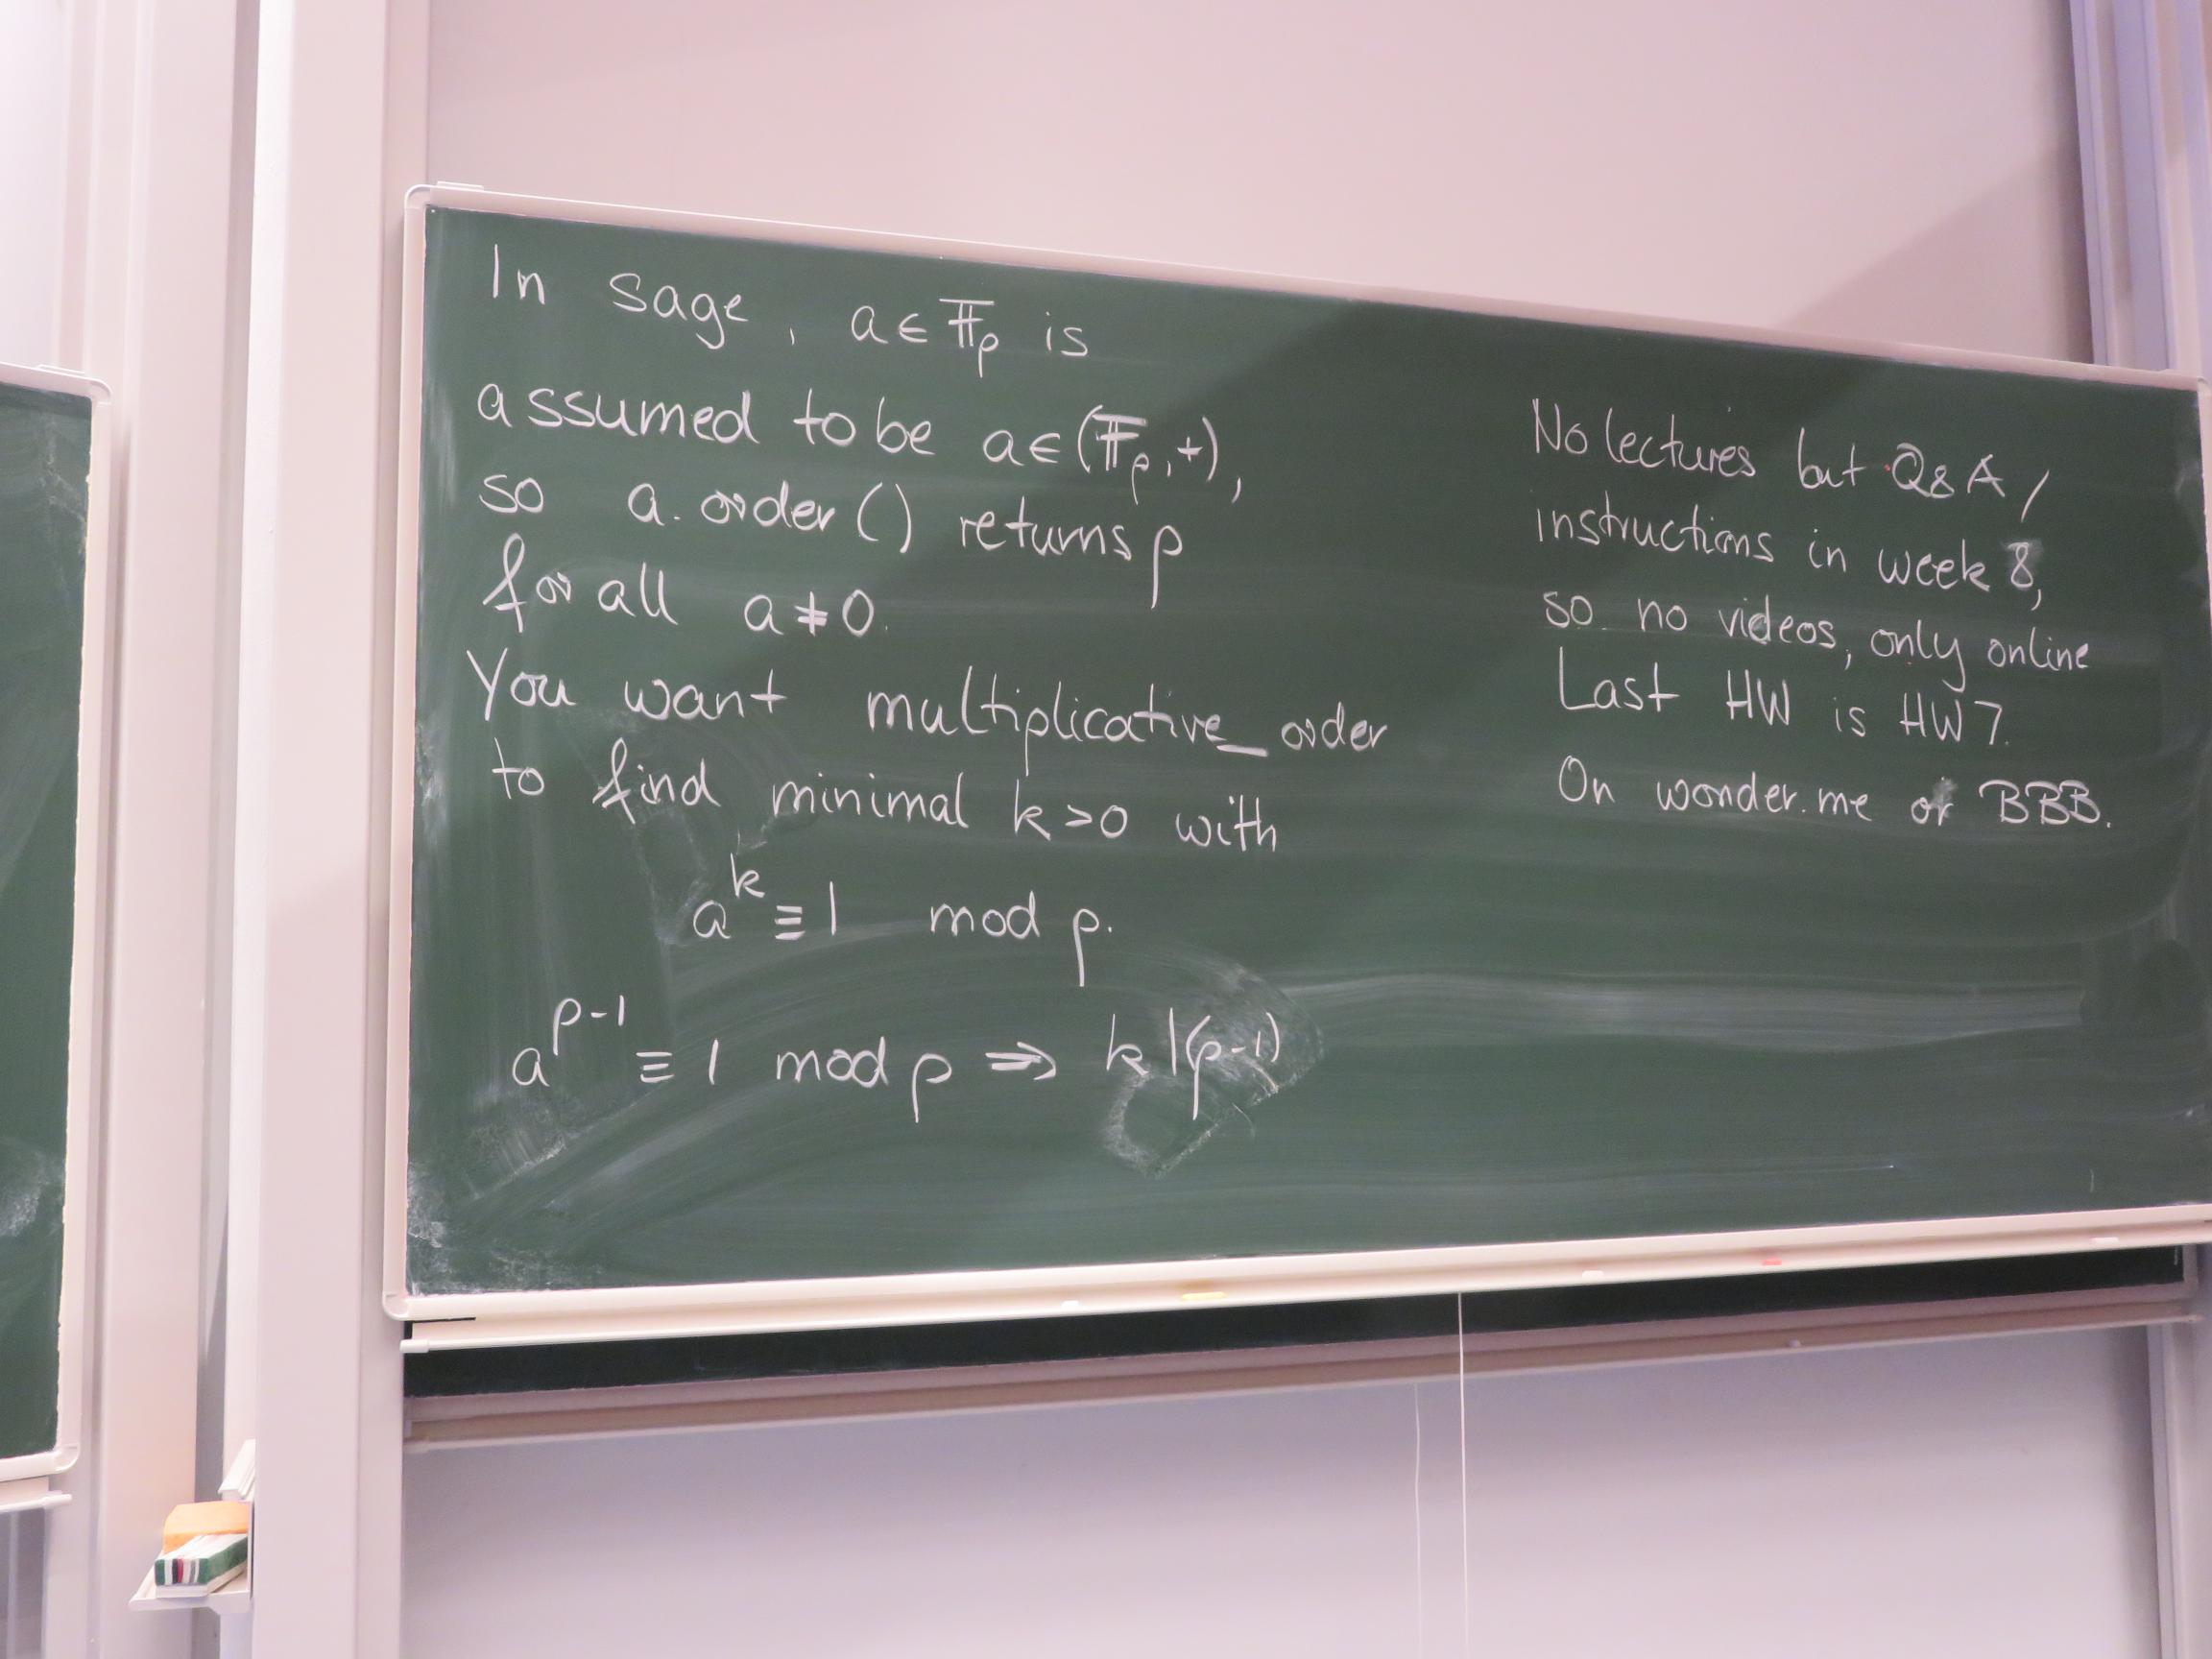 In sage, a ∈ 𝔽p is
assumed to be a ∈ (𝔽p, +),
so a.order() returns p
for all a ≠ 0.
You want multiplicative_order
to find minimal k > 0 with
a^k ≡ 1 mod p.
a^(p-1) ≡ 1 mod p ⇒ k | (p-1)
No lectures but Q&A /
instructions in week 8,
so no videos, only online
Last HW is HW7.
On wonder.me or BBB.